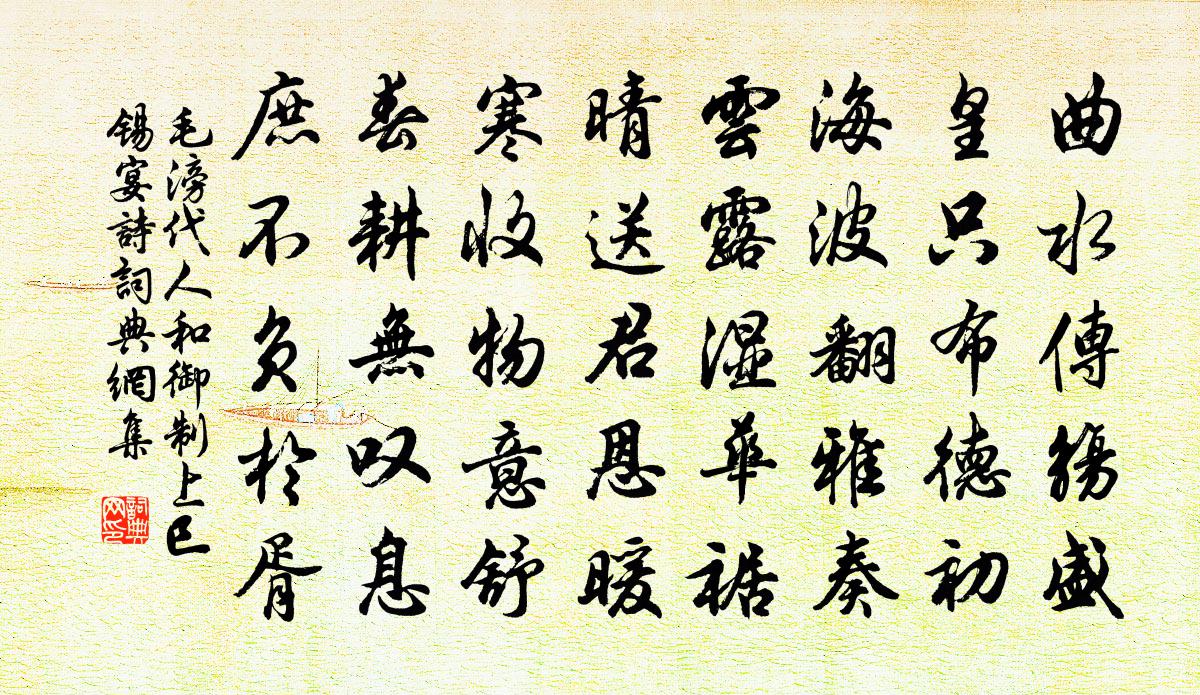 曲水傳觴盛
皇只布德初
海波翻雅奏
雲露湿華裾
晴送君恩暖
寒收物意舒
春耕無叹息
庶不负於胥
毛滂代人和御制上巳
錫宴詩詞典網集
詞典
网印